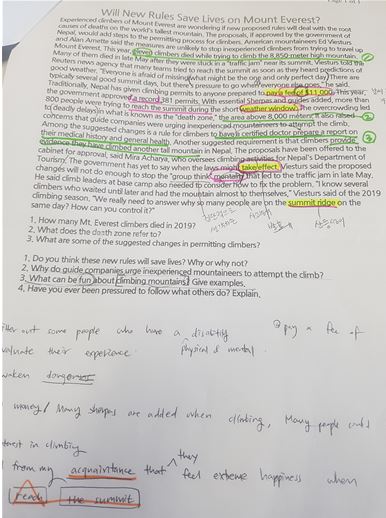 Will New Rules Save Lives on Mount Everest?
Experienced climbers of Mount Everest are wondering if new proposed rules will deal with the root
causes of deaths on the world's tallest mountain. The proposals, if approved by the government of
Nepal, would add steps to the permitting process for climbers. American mountaineers Ed Viesturs
and Alan Arnette said the measures are unlikely to stop inexperienced climbers from trying to travel up
Mount Everest. This year, eleven climbers died while trying to climb the 8,850 meter high mountain.
Many of them died in late May after they were stuck in a "traffic jam" near its summit. Viesturs told the
Reuters news agency that many teams tried to reach the summit as soon as they heard predictions of
good weather. "Everyone is afraid of missing what might be the one and only perfect day. There are
typically several good summit days, but there's pressure to go when everyone else goes," he said.
Traditionally, Nepal has given climbing permits to anyone prepared to pay a fee of $11,000. This year,
the government approved a record 381 permits. With essential Sherpas and guides added, more than
800 people were trying to reach the summit during the short weather window. The overcrowding led
to deadly delays in what is known as the "death zone," the area above 8,000 meters. It also raised
concerns that guide companies were urging inexperienced mountaineers to attempt the climb.
Among the suggested changes is a rule for climbers to have a certified doctor prepare a report on
their medical history and general health. Another suggested requirement is that climbers provide
evidence they have climbed another tall mountain in Nepal. The proposals have been offered to the
cabinet for approval, said Mira Acharya, who oversees climbing activities for Nepal's Department of
Tourism. The government has yet to say when the laws might take effect. Viesturs said the proposed
changes will not do enough to stop the "group think" mentality that led to the traffic jam in late May.
He said climb leaders at base camp also needed to consider how to fix the problem. "I know several
climbers who waited until later and had the mountain almost to themselves," Viesturs said of the 2019
climbing season. "We really need to answer why so many people are on the summit ridge on the
same day? How can you control it?"
1. How many Mt. Everest climbers died in 2019?
2. What does the death zone refer to?
3. What are some of the suggested changes in permitting climbers?
1. Do you think these new rules will save lives? Why or why not?
2. Why do guide companies urge inexperienced mountaineers to attempt the climb?
3. What can be fun about climbing mountains? Give examples.
4. Have you ever been pressured to follow what others do? Explain.
out some people who have a disability
pay a fee of
their experience.
physical & mental
dangerous
money / Many sherpas are added when climbing, Many people
in climbing
from my acquaintance that they feel extreme happiness when
reach the summit